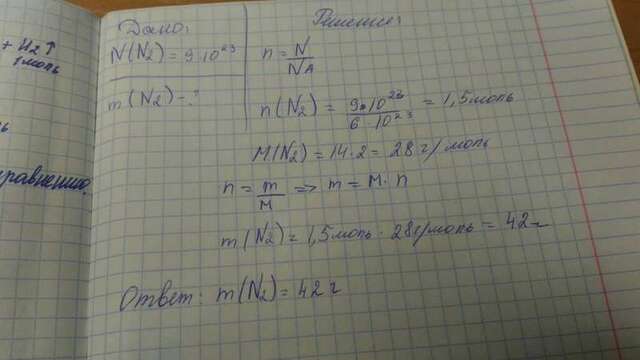 + H₂↑
1 моль
равнению.
Дано:
N(N₂) = 9·10²³
m(N₂) - ?
Решение:
n = N/NA
n(N₂) = 9·10²³/6·10²³ = 1,5 моль
M(N₂) = 14·2 = 28 г/моль
n = m/M => m = M·n
m(N₂) = 1,5 моль · 28 г/моль = 42 г
Ответ: m(N₂) = 42 г